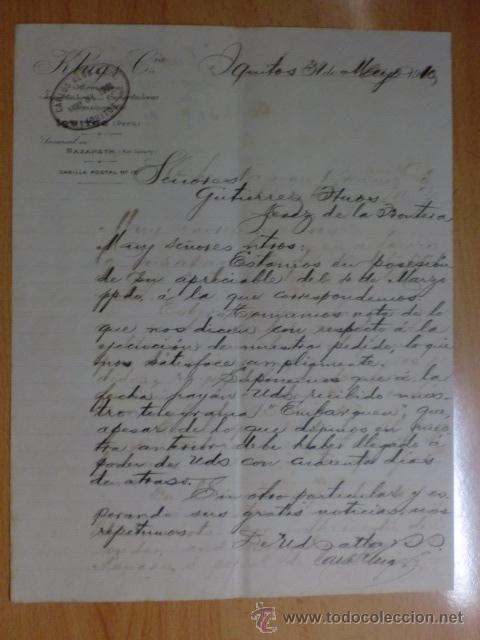 Iquitos 31 de Mayo 1910
Cia
Iquitos (Perú)
Sucursal en
NAZARETH (Rio Yavary)
CASILLA POSTAL Nº
Señores
Gutierrez Hnos
Jerez de la Frontera
Muy señores ntros:
Estamos en posesión
de su apreciable del de Marzo
ppdo, á la que correspondemos.
Tomamos nota de lo
que nos dicen con respecto á la
ejecución de nuestro pedido, lo que
nos satisface ampliamente.
Suponemos que á la
fecha hayan Uds recibido nues-
tro telegrama "Embarquen", que,
apesar de lo que dijimos en nues-
tra anterior debe haber llegado á
poder de Uds con cuarenta dias
de atraso.
Sin otro particular y es-
perando sus gratas noticias, nos
repetimos
De Uds attos SS.
www.todocoleccion.net